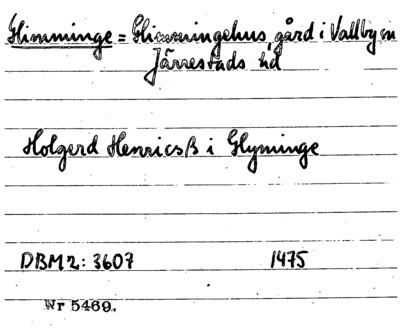 Glimminge = Glimmingehus, gård i Vallby sn
Järrestads hd
Holgerd Henricsß i Glyminge
DBM 2: 3607 1475
Nr 5469.